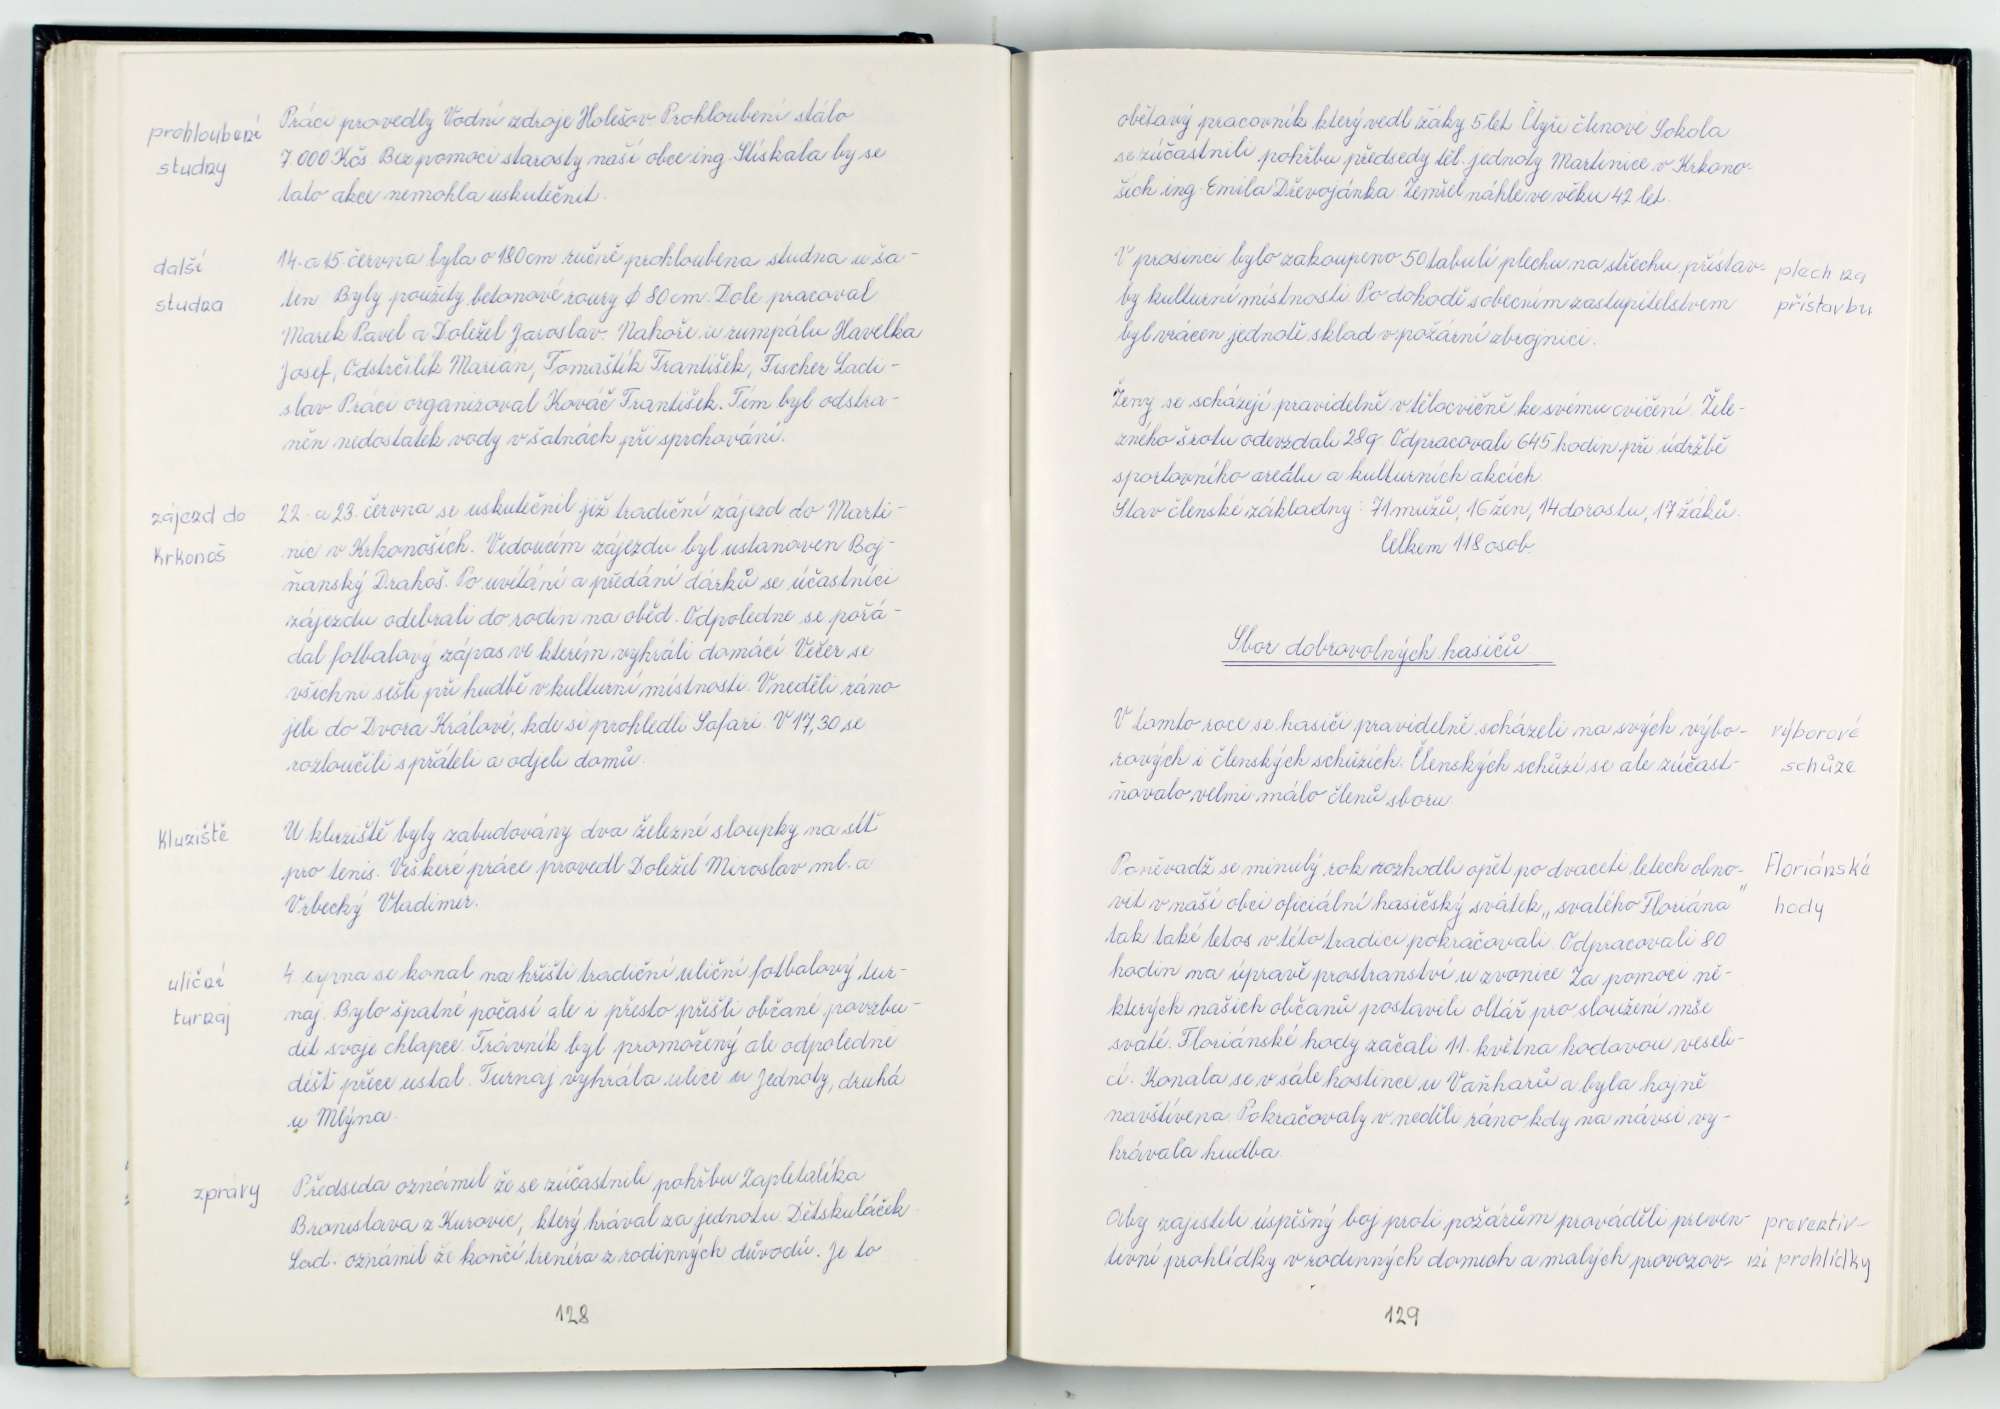 prohloubení
studny
Práci provedly Vodní zdroje Holešov. Prohloubení stálo
7 000 Kčs. Bez pomoci starosty naší obce ing. Stískala by se
tato akce nemohla uskutečnit.
další
studna
14. a 15. června byla o 180 cm ručně prohloubena studna u ša-
ten. Byly použity betonové roury ϕ 80 cm. Dole pracoval
Marek Pavel a Doležel Jaroslav. Nahoře u rumpálu Havelka
Josef, Odstrčilík Marián, Tomaštík František, Fischer Ladi-
slav. Práci organizoval Kováč František. Tím byl odstra-
něn nedostatek vody v šatnách při sprchování.
zájezd do
Krkonoš
22. a 23. června se uskutečnil již tradiční zájezd do Marti-
nic v Krkonoších. Vedoucím zájezdu byl ustanoven Boj-
ňanský Drahoš. Po uvítání a předání dárků se účastníci
zájezdu odebrali do rodin na oběd. Odpoledne se pořá-
dal fotbalový zápas ve kterém vyhráli domácí. Večer se
všichni sešli při hudbě v kulturní místnosti. V neděli ráno
jeli do Dvora Králové, kde si prohledli Safari. V 17,30 se
rozloučili s přáteli a odjeli domů.
Kluziště
U kluziště byly zabudovány dva železné sloupky na síť
pro tenis. Veškeré práce provedl Doležel Miroslav ml. a
Vrbecký Vladimír.
uliční
turnaj
4. srpna se konal na hřišti tradiční uliční fotbalový tur-
naj. Bylo špatné počasí ale i přesto přišli občané povzbu-
dit svoje chlapce. Trávník byl promořený ale odpoledne
déšť přece ustal. Turnaj vyhrála ulice u Jednoty, druhá
u Mlýna.
zprávy
Předseda oznámil že se zúčastnili pohřbu Zapletalíka
Bronislava z Kurovic, který hrával za jednotu. Dětskuláček
Lad. oznámil že končí trenéra z rodinných důvodů. Je to
128
obětavý pracovník který vedl žáky 5 let. Čtyři členové Sokola
se zúčastnili pohřbu předsedy těl. jednoty Martinice v Krkono-
ších ing. Emila Dřevojánka. Zemřel náhle ve věku 42 let.
V prosinci bylo zakoupeno 50 tabulí plechu na střechu přístav-
by kulturní místnosti. Po dohodě s obecním zastupitelstvem
byl vrácen jednotě sklad v požární zbrojnici.
plech na
přístavbu
Ženy se scházejí pravidelně v tělocvičně ke svému cvičení. Žele-
zného šrotu odevzdali 28q. Odpracovali 645 hodin při údržbě
sportovního areálu a kulturních akcích.
Stav členské základny: 71 mužů, 16 žen, 14 dorostu, 17 žáků.
Celkem 118 osob.
Sbor dobrovolných hasičů
V tomto roce se hasiči pravidelně scházeli na svých výbo-
rových i členských schůzích. Členských schůzí se ale zúčast-
ňovalo velmi málo členů sboru.
výborové
schůze
Poněvadž se minulý rok rozhodli opět po dvaceti letech obno-
vit v naší obci oficiální hasičský svátek „svatého Floriána"
tak také letos v této tradici pokračovali. Odpracovali 80
hodin na úpravě prostranství u zvonice. Za pomoci ně-
kterých našich občanů postavili oltář pro sloužení mše
svaté. Floriánské hody začali 11. května hodavou veseli-
cí. Konala se v sále hostince u Vaňharů a byla hojně
navštívena. Pokračovaly v neděli ráno kdy na návsi vy-
hrávala hudba.
Floriánské
hody
Aby zajistili úspěšný boj proti požárům prováděli preven-
tivní prohlídky v rodinných domech a malých provozov-
preventiv-
ní prohlídky
129